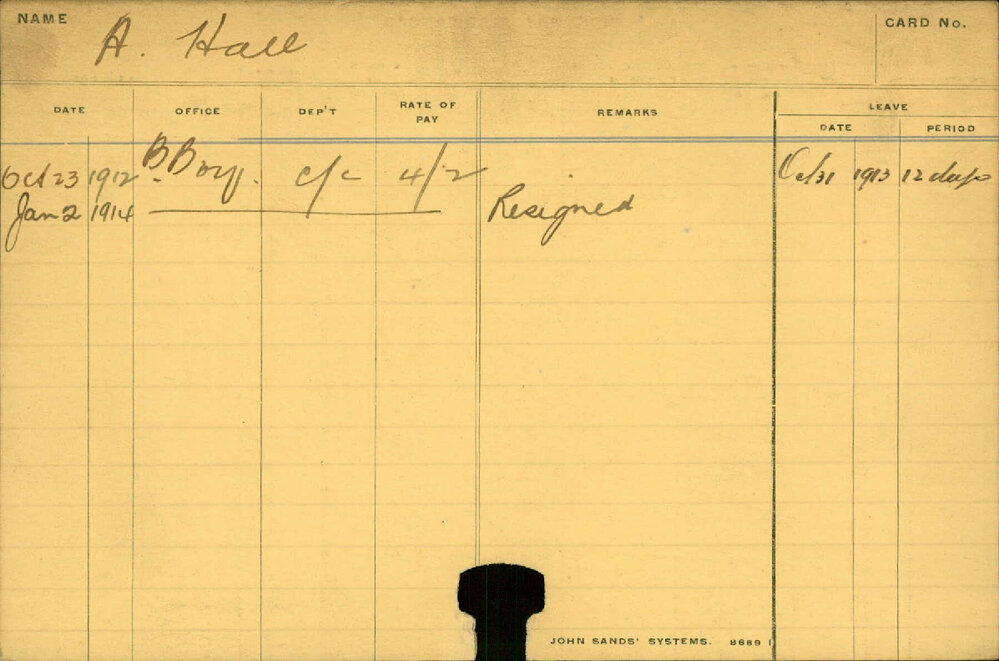 NAME A. Hall CARD No.
LEAVE
DATE OFFICE DEP'T RATE OF PAY REMARKS DATE PERIOD
Oct 23 1912 B. Boy. c/c 4/2 Oct 31 1913 12 days
Jan 2 1914 Resigned
JOHN SANDS' SYSTEMS. 8689